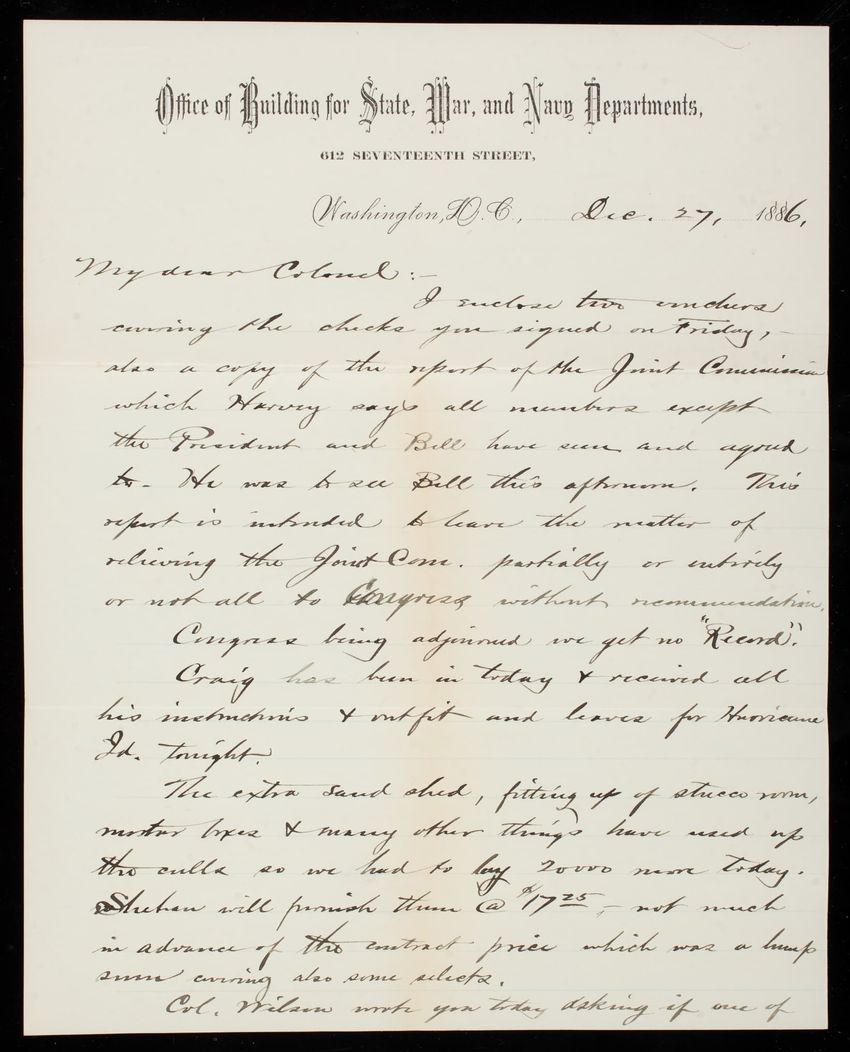 Office of Building for State, War, and Navy Departments,
612 SEVENTEENTH STREET,
Washington, D.C., Dec. 27, 1886.
My dear Colonel:-
I enclose two vouchers
covering the checks you signed on Friday, -
also a copy of the report of the Joint Commission
which Harvey says all members except
the President and Bell have seen and agreed
to. He was to see Bell this afternoon. This
report is intended to leave the matter of
relieving the Joint Com. partially or entirely
or not all to Congress without recommendation.
Congress being adjourned we get no "Record".
Craig has been in today & received all
his instructions & outfit and leaves for Hurricane
Id. tonight.
The extra sand shed, fitting up of stucco room,
mortar boxes & many other things have used up
the culls so we had to buy 20000 more today.
Shehan will furnish them @ $17 25, - not much
in advance of the contract price which was a lump
sum covering also some selects.
Col. Wilson wrote you today asking if one of